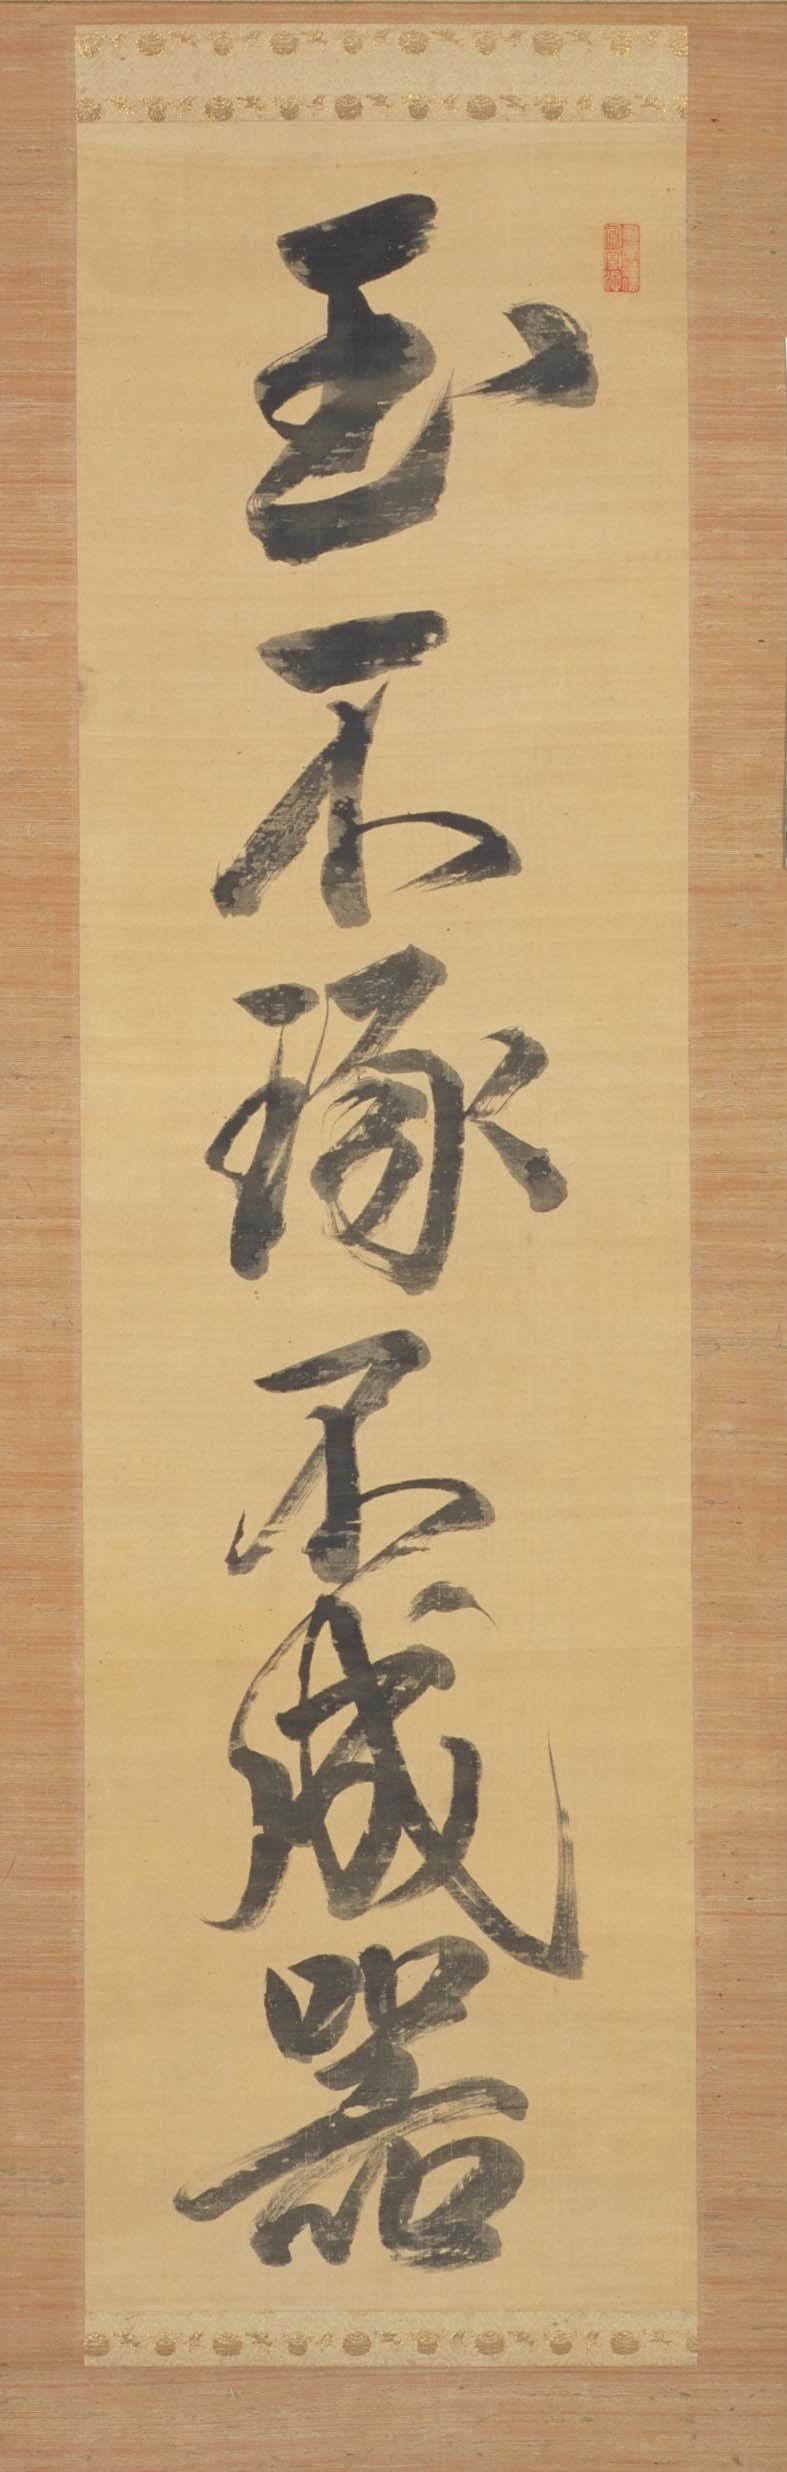 玉不琢不成器